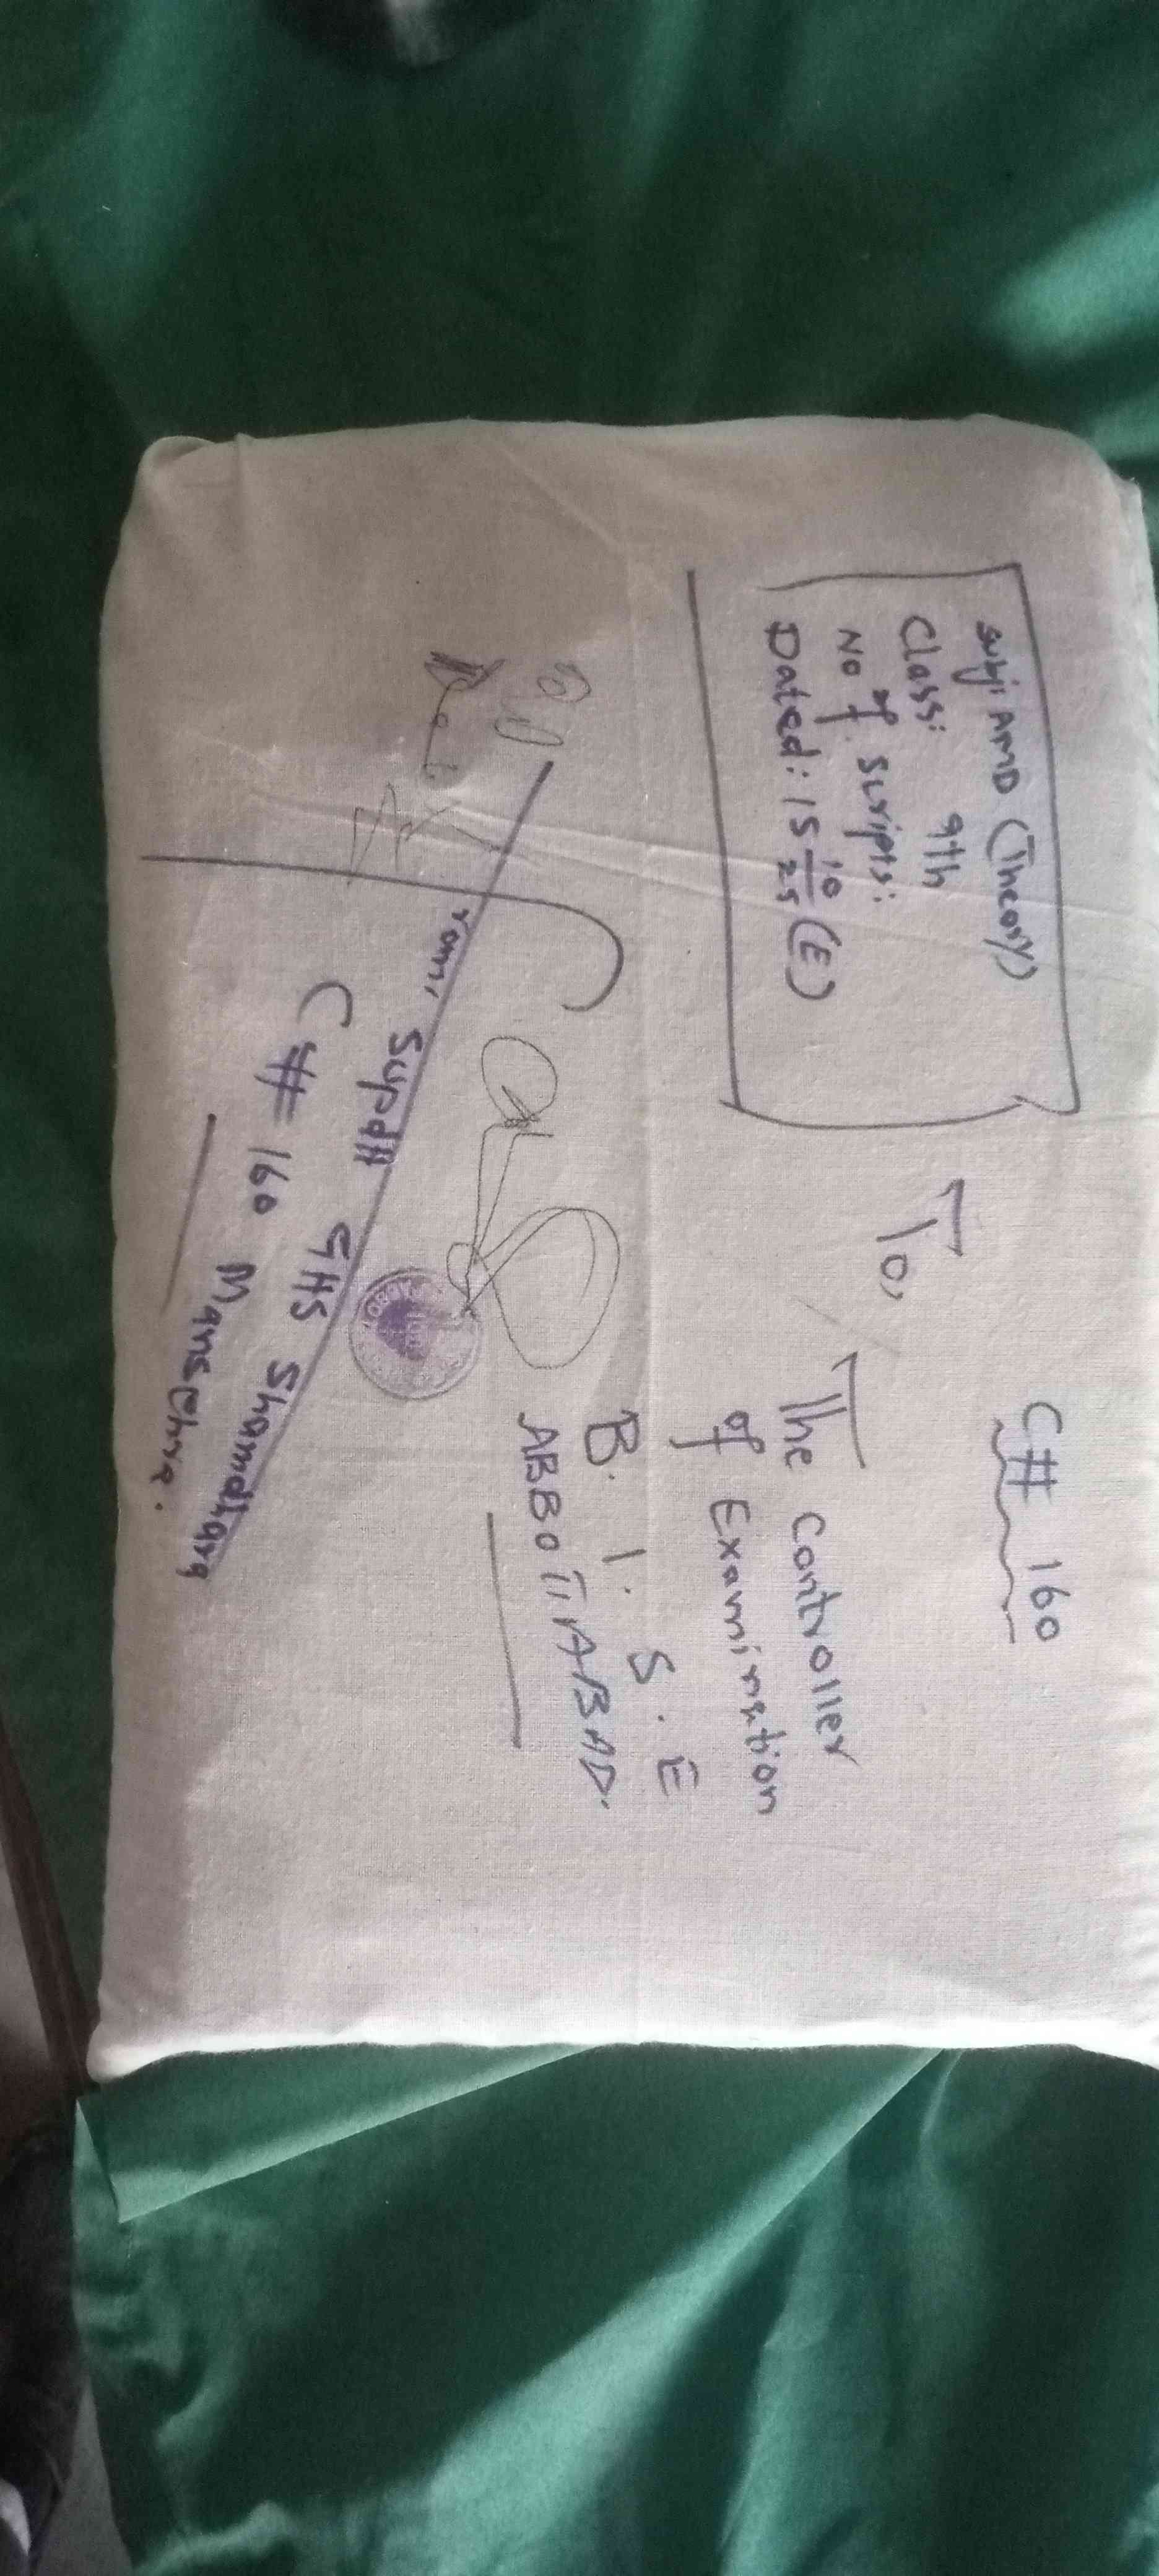 C# 160
Subj: AMD (Theory)
Class: 9th
No of scripts:
Dated: 15 10/25 (E)
To,
The Controller
of Examination
B. I. S. E
ABBOTTABAD.
From, Supdtt GHS Shamdhara
C# 160 Mansehra.